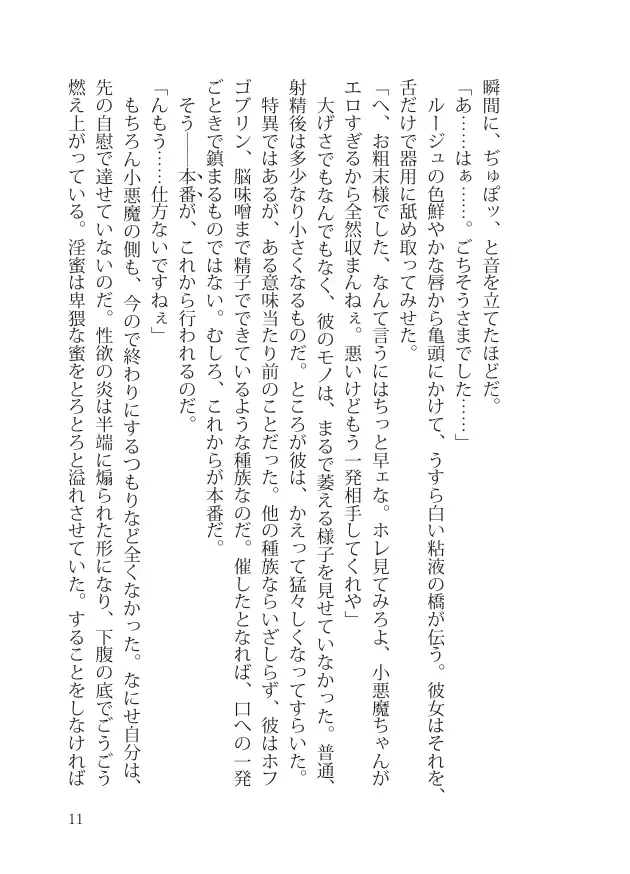 瞬間に、ぢゅぽッ、と音を立てたほどだ。
「あ……はぁ……。ごちそうさまでした……」
ルージュの色鮮やかな唇から亀頭にかけて、うすら白い粘液の橋が伝う。彼女はそれを、
舌だけで器用に舐め取ってみせた。
「へ、お粗末様でした、なんて言うにはちっと早ェな。ホレ見てみろよ、小悪魔ちゃんが
エロすぎるから全然収まんねぇ。悪いけどもう一発相手してくれや」
大げさでもなんでもなく、彼のモノは、まるで萎える様子を見せていなかった。普通、
射精後は多少なり小さくなるものだ。ところが彼は、かえって猛々しくなってすらいた。
特異ではあるが、ある意味当たり前のことだった。他の種族ならいざしらず、彼はホフ
ゴブリン、脳味噌まで精子でできているような種族なのだ。催したとなれば、口への一発
ごときで鎮まるものではない。むしろ、これからが本番だ。
そう――本番が、これから行われるのだ。
「んもう……仕方ないですねぇ」
もちろん小悪魔の側も、今ので終わりにするつもりなど全くなかった。なにせ自分は、
先の自慰で達せていないのだ。性欲の炎は半端に煽られた形になり、下腹の底でごうごう
燃え上がっている。淫蜜は卑猥な蜜をとろとろと溢れさせていた。することをしなければ
11